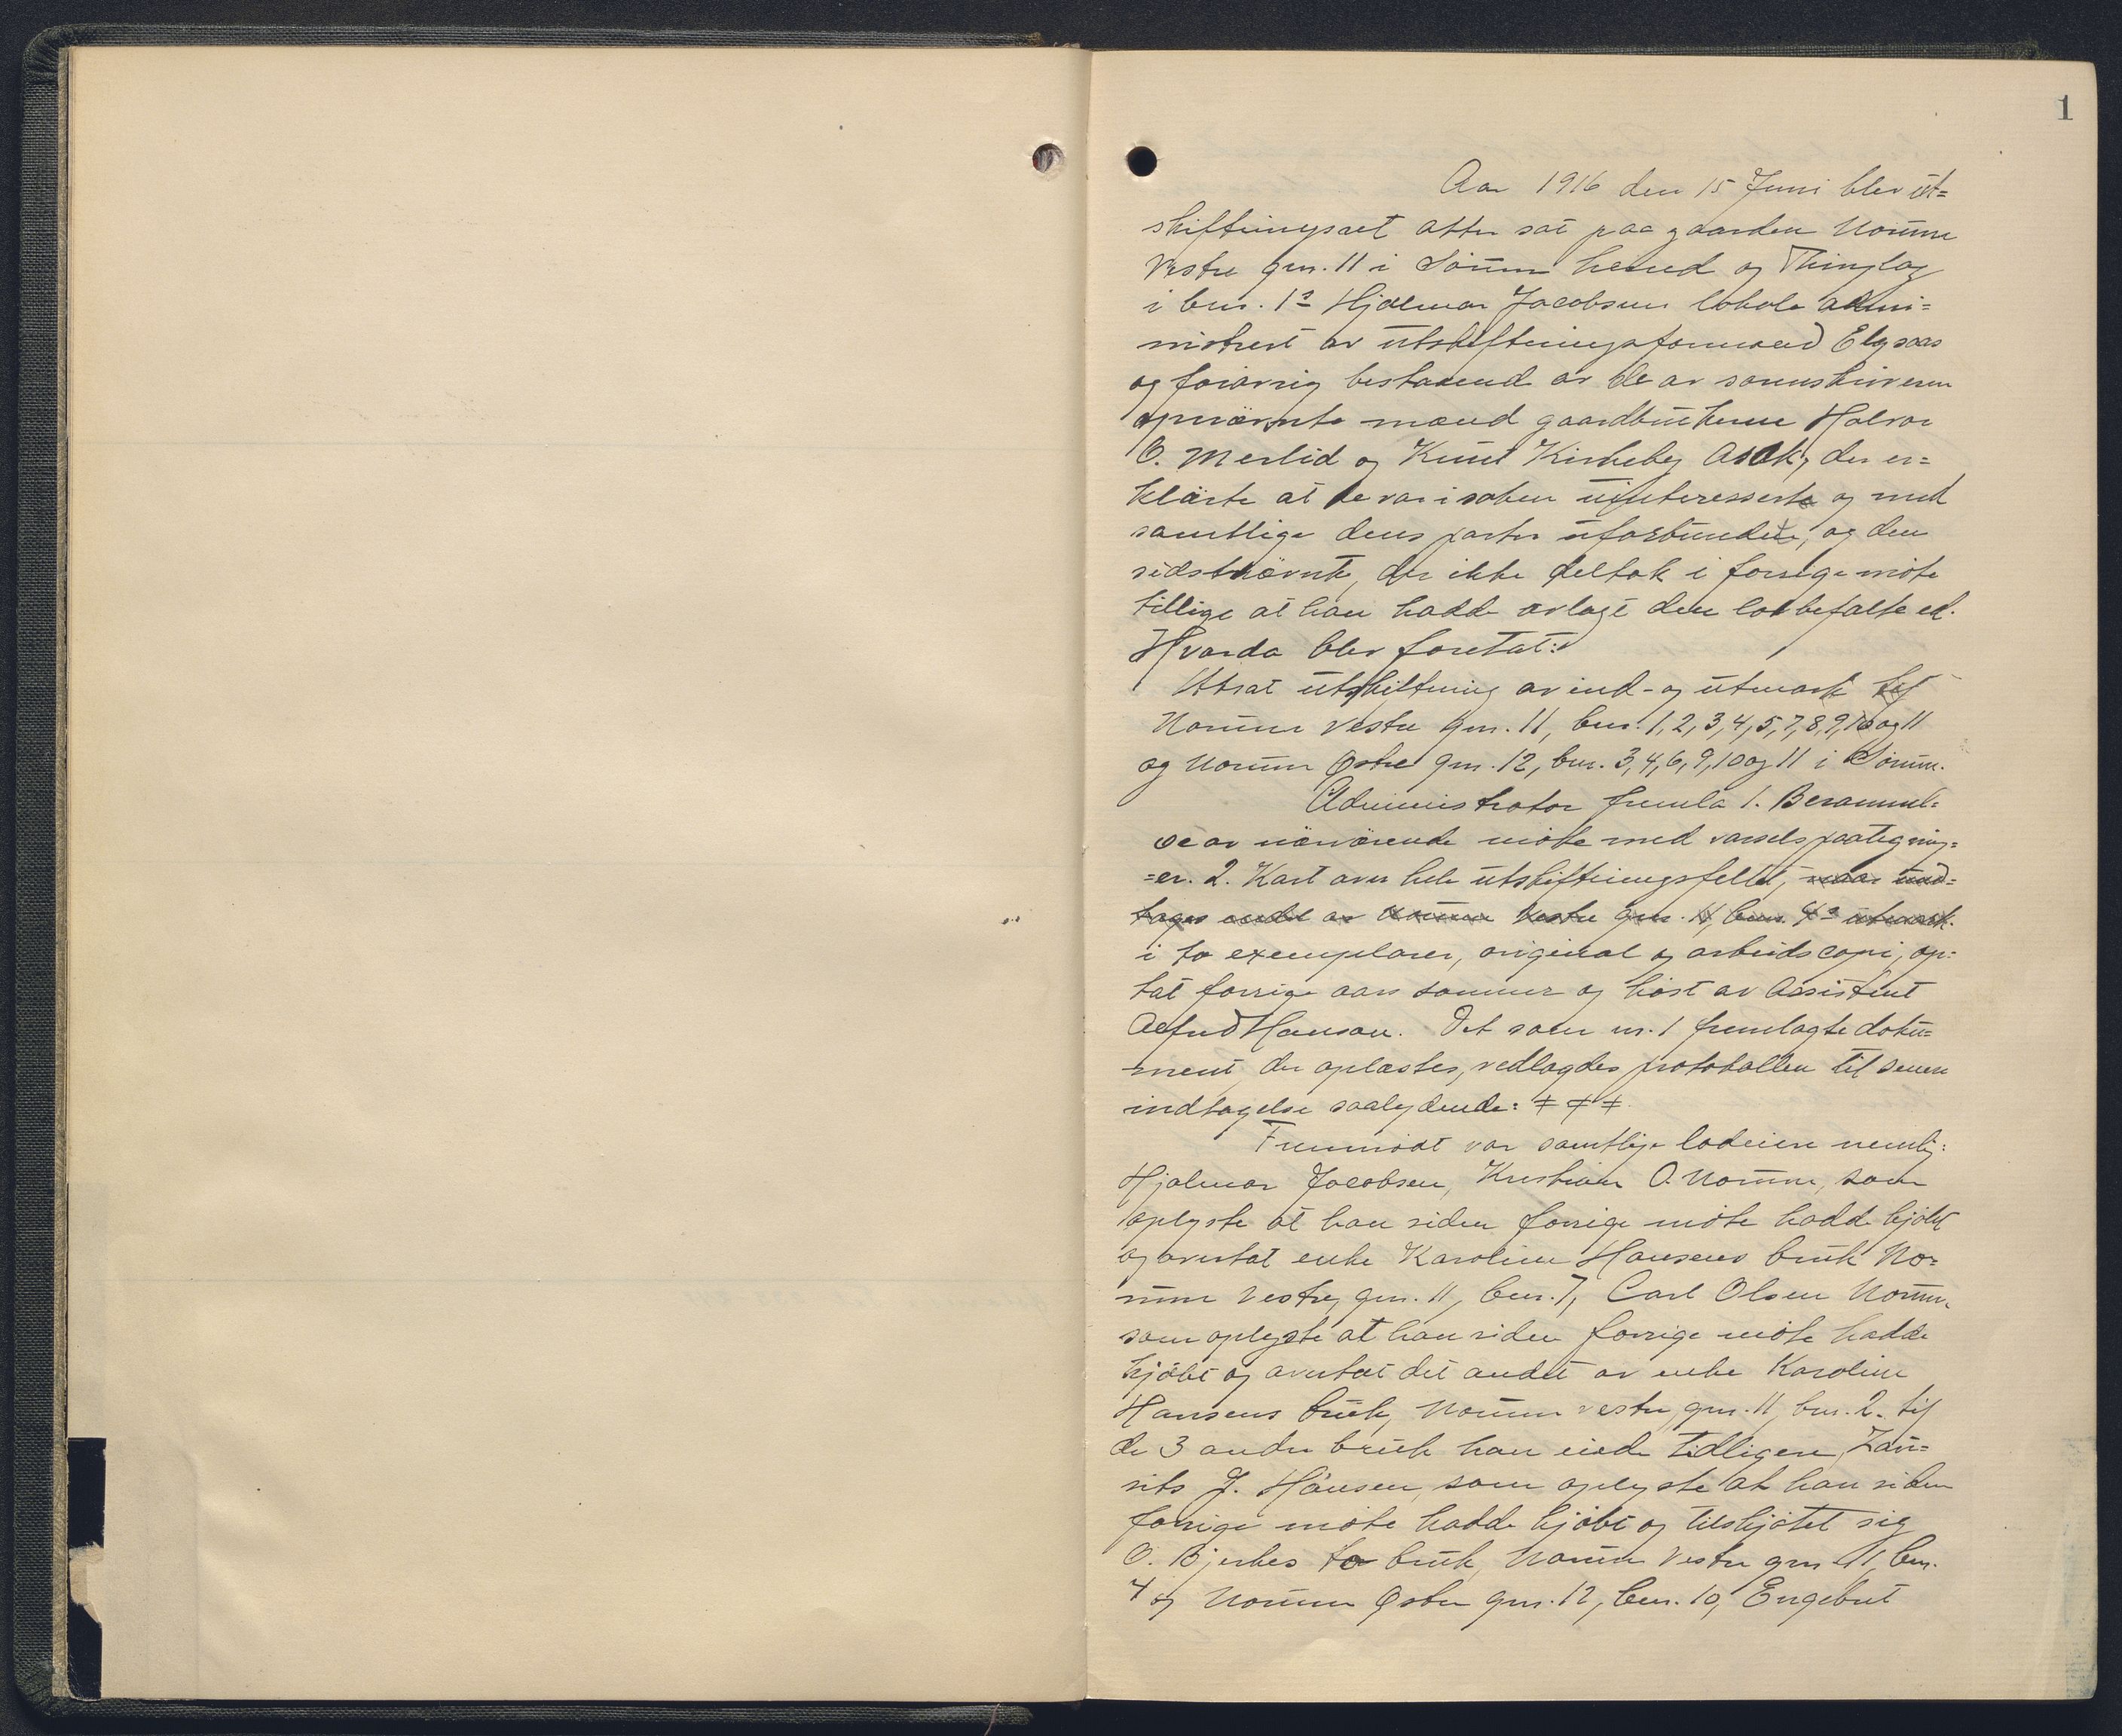 1
Aar 1916 den 15 Juni blev ut=
skiftningsret atter sat paa gaarden Norum
Vestre gnr. 11 i Sørum herred og Thinglag
i bnr. 1² Hjalmar Jacobsens lokale admi=
nistrert av utskiftningsformand Elgsaas
og forøvrig bestaaend av de av sorenskriveren
opnævnte mænd gaardbrukerne Halvor
O. Merlid og Knut Kirkeby Asak, der er=
klærte at de var i saken uinteresserte og med
samtlige dens parter uforbundet, og den
sidstnævnte, der ikke deltok i forrige møte
tillige at han hadde avlagt den lovbefalte ed.
Hvorda blev foretat:
Utsat utskiftning av ind- og utmark til
Norum vestre gnr. 11, bnr. 1,2,3,4,5,7,8,9,10 og 11
og Norum Østre gnr. 12, bnr. 3,4,6,9,10 og 11 i Sørum.
Administrator fremla 1. Berammel=
se av nærværende møte med varselspaategning=
=er. 2. Kart over hele utskiftningsfeltet, naar und=
tages endel av Norum Vestre gnr. 11, bnr. 4² utmark.
i to exemplarer, original og arbeidscopi, op=
tat forrige aars sommer og høst av Assistent
Alfred Hanson. Det som nr. 1 fremlagte doku=
ment der oplæstes, vedlagdes protokollen til senere
indtagelse saalydende: ‡ ‡ ‡
Fremmødt var samtlige lodeiere nemlig:
Hjalmar Jacobsen, Kristian O. Norum, som
oplyste at han siden forrige møte hadde kjøbt
og overtat enke Karoline Hansens bruk No=
rum Vestre, gnr. 11, bnr. 7, Carl Olsen Norum,
som oplyste at han siden forrige møte hadde
kjøbt og overtat det andet av enke Karoline
Hansens bruk, Norum vestre, gnr. 11, bnr. 2. til
de 3 andre bruk han eiede tidligere, Lau=
rits J. Hansen, som oplyste at han siden
forrige møte hadde kjøbt og tilskjøtet sig
O. Bjerkes to bruk, Norum Vestre gnr 11, bnr.
4 og Norum Østre gnr. 12, bnr. 10, Engebret